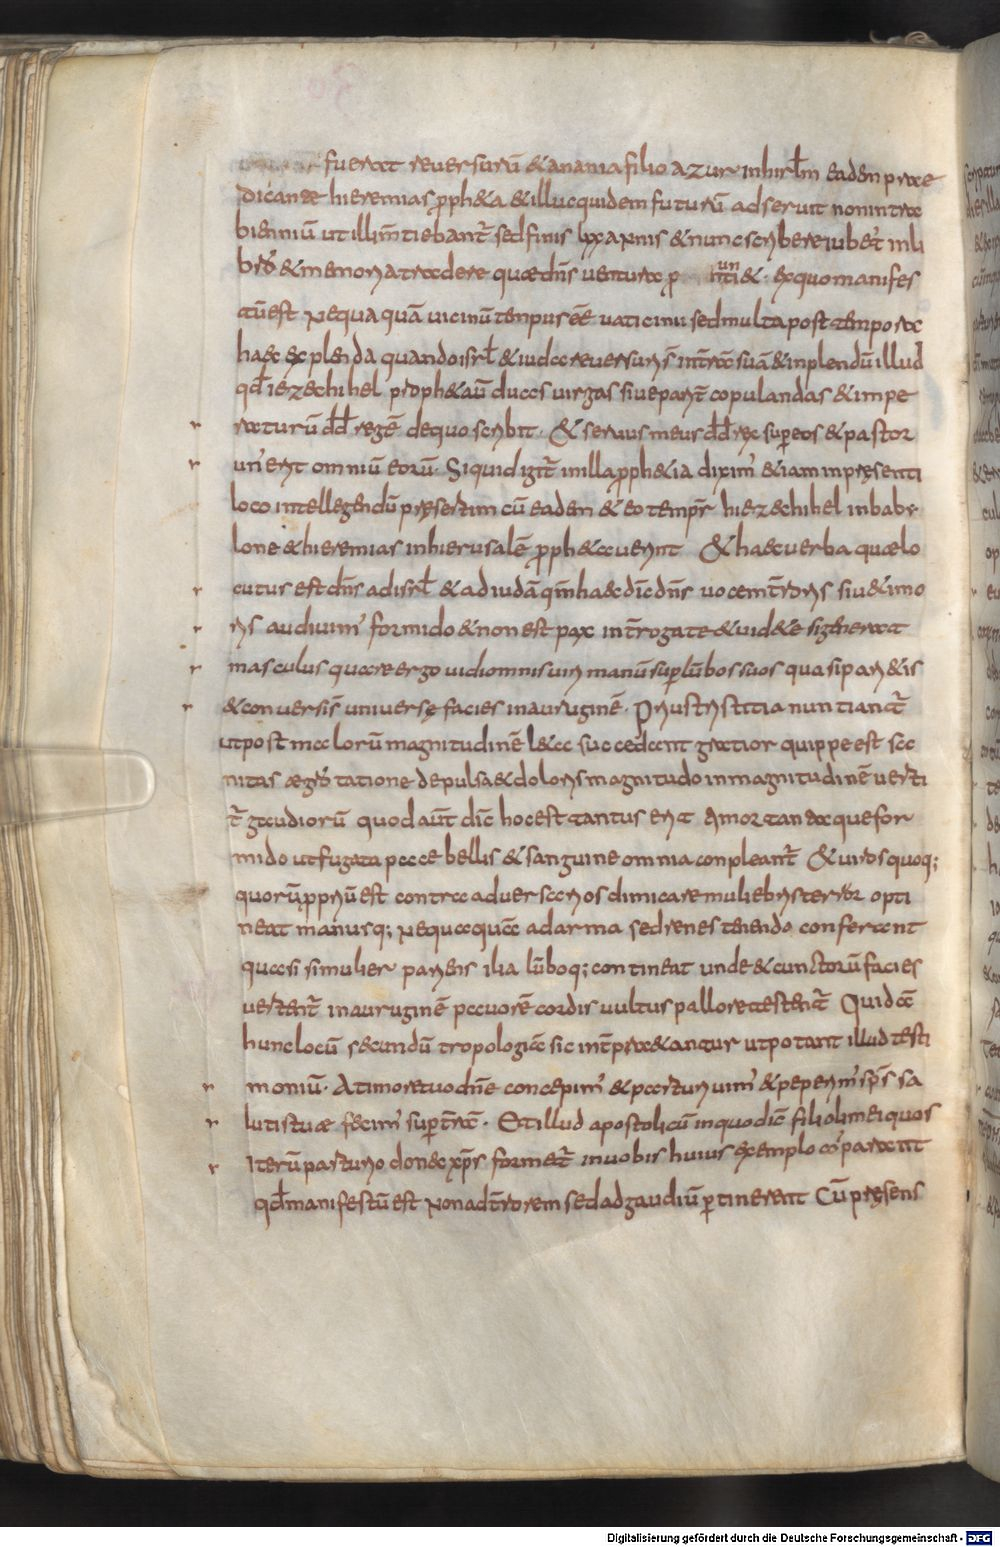 fuerat reuersurũ & anania filio azur inhirłm eadem prae
dicante hieremias p̱ph&a & illuc quidem futurũ adseruit non intra
bienniũ ut illi m̃tiebant̃ sed finis lxx annis & nunc scribere iub&ˀ in li
brˀ & memoriae tradere quae dñs uenturae p nũnti& · ex quo manifes
tũ est nequaquã uicinũ tempus eẽ uaticinii sed multa post tempora
haec explenda quando isrł & iuda reuersuriš in t̃rã suã & inplendũ illud
qđ iezechihel proph&aũ duas uirgas siue parit̃ copulandas & impe
raturũ đđ regẽ de quo scribit · & seruus meus đđ rex super eos & pastor
unˀ erit omniũ eorũ · Si quid igit̃ in illa p̱ph&ia diximˀ & iam in pręsenti
loco intellegendũ pręsertim cũ eadem & eo temp̃r hiezechihel in baby
lone & hieremias in hierusalẽ p̱ph&auerint & haec uerba quae lo
cutus est dñs ad isrł & ad iudã qm̃ haec dic̃ dñs uocem t̃roris siu& imo
ris audiuimˀ formido & non est pax int̃rogate & uid&e si generat
masculus quare ergo uidi omnis uiri manũ sup̱ lũbos suos quasi pari&is
& conuersiš uniuersę facies in auruginẽ · Prius tristitia nuntiant̃
ut post maelorũ magnitudinẽ l&a succedant gratior quippe est sa
nitas aegrˀtatione depulsa & doloris magnitudo in magnitudinẽ uerti
t̃ gaudiorũ quod aut̃ dic̃ hoc est tantus erit timor tantaque for
mido ut fugata pace bellis & sanguine omnia conpleant̃ & uiros quoq;
quorũ p̱priũ est contra aduersarios dimicare muliebris terror opti
neat manusq; nequaquã ad arma sed renes tenendo conferant
quasi si mulier pariens ilia lũboq; contineat unde & cunctorũ facies
uertent̃ in auruginẽ pauorẽ cordis uultus pallore testent̃ Quidã
hunc locũ secundũ tropologiã sic int̃pr&antur ut potant illud testi
moniũ · A timore tuo dñe concepimˀ & parturiuimˀ & peperimˀ sp̃s sa
lutis tuae fecimˀ sup̱ t̃rã · Et illud apostolicũ in quo dic̃ filioli mei quos
Iterũ parturio donec xp̃s form&t̃ in uobis huius exemplo cõparant
qđ manifestũ est non ad t̃rorem sed ad gaudiũ p̱tinerent Cũ pręsens
Digitalisierung gefördert durch die Deutsche Forschungsgemeinschaft - DFG